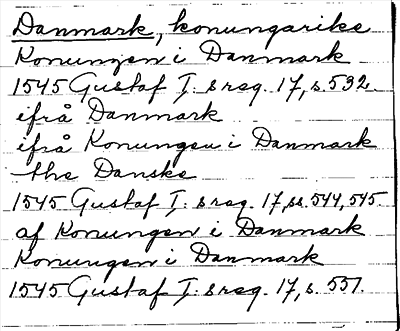 Danmark, konungarike
Konungen i Danmark
1545 Gustaf I: s reg. 17, s. 532.
ifrå Danmark
ifrå Konungen i Danmark
the Danske
1545 Gustaf I: s reg. 17, ss. 544, 545.
af Konungen i Danmark
Konungen i Danmark
1545 Gustaf I: s reg. 17, s. 557.